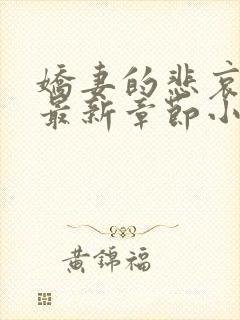 嬌妻的悲哀
最新章節小
黃錦福